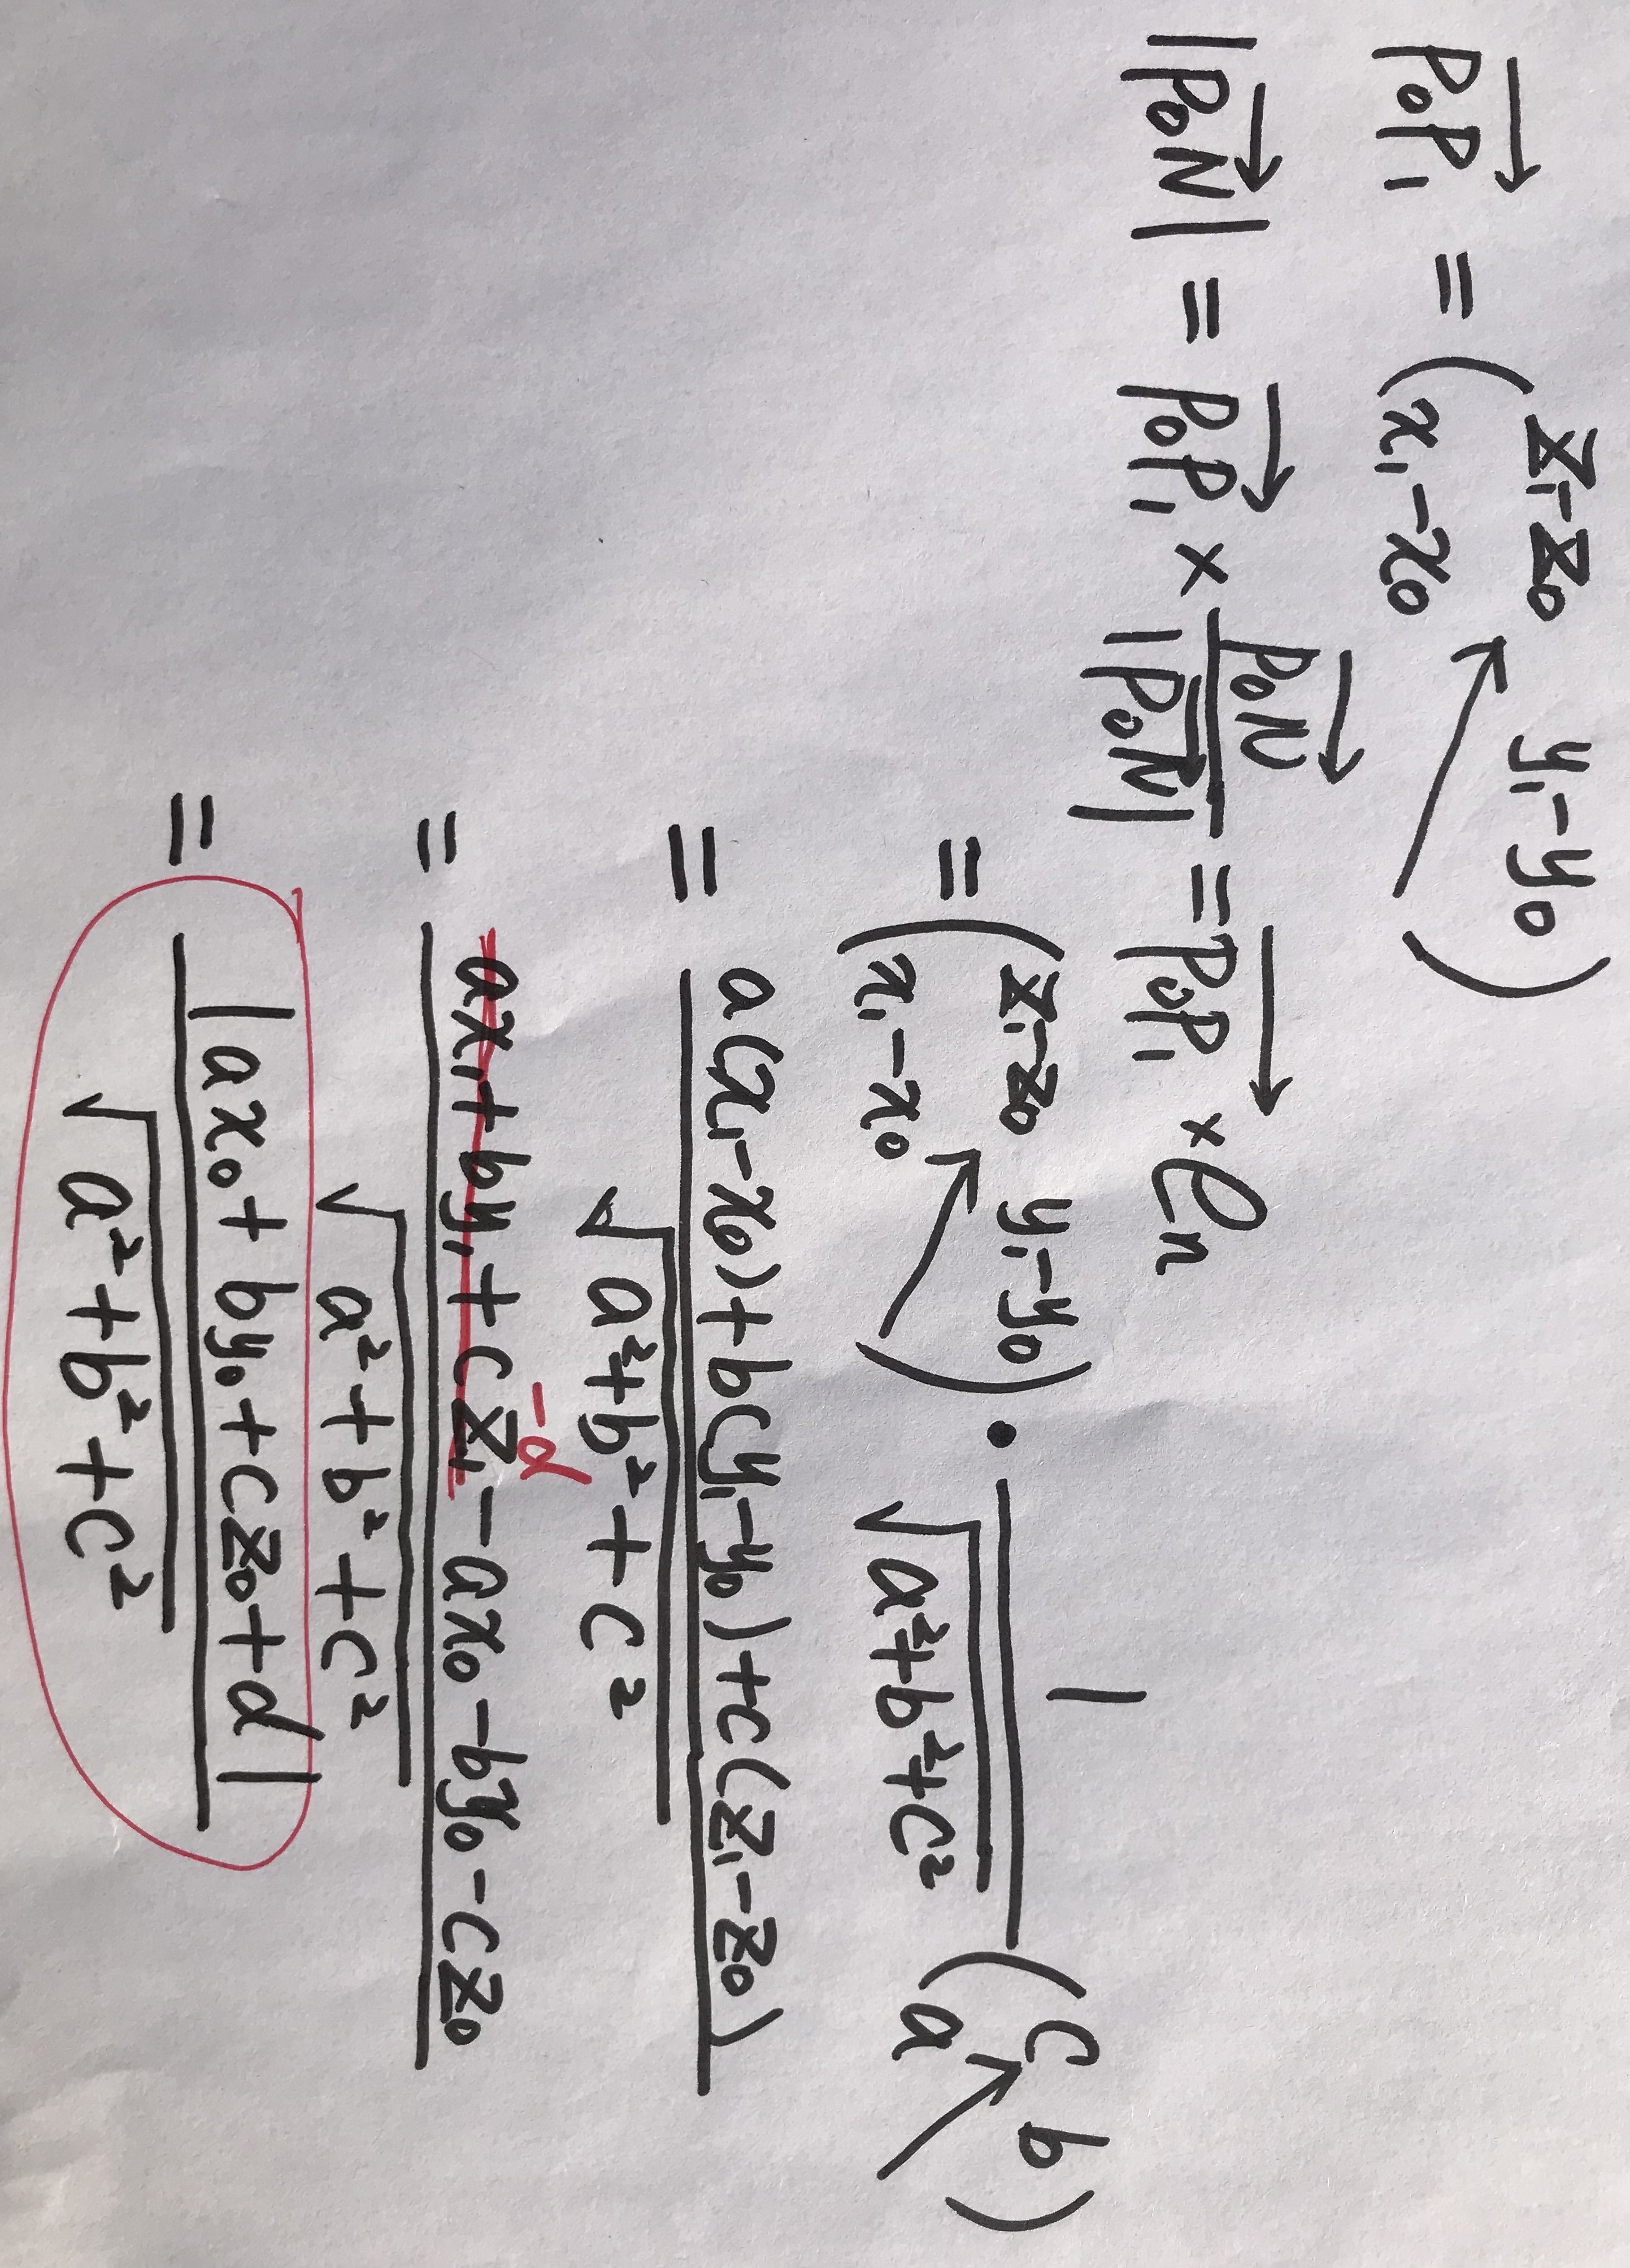 P₀P₁ = ( z₁-z₀ y₁-y₀
x₁-x₀ ↖ )
|P₀N| = P₀P₁ × P₀N / |P₀N| = P₀P₁ × en
= ( z₁-z₀ y₁-y₀ x₁-x₀ ↖ ) • 1 / √a²+b²+c² ( c b a ↖ )
= a(x₁-x₀)+b(y₁-y₀)+c(z₁-z₀) / √a²+b²+c²
-d
= ax₁+by₁+cz₁-ax₀-by₀-cz₀ / √a²+b²+c²
= |ax₀+by₀+cz₀+d| / √a²+b²+c²